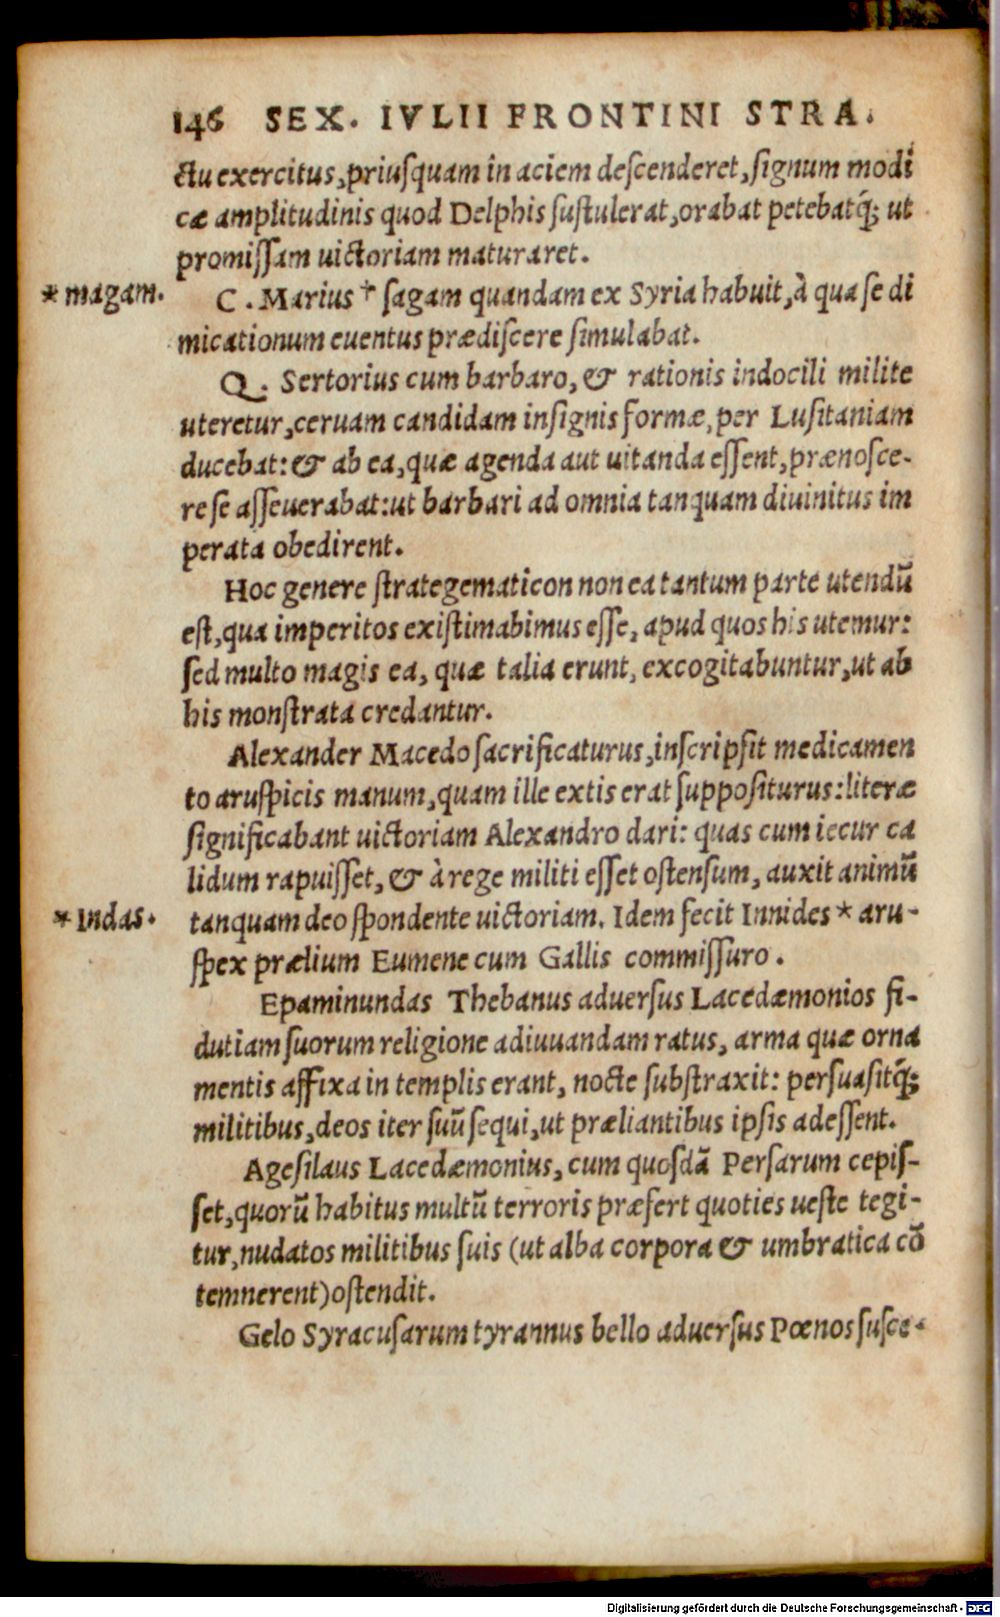 146 SEX. IVLII FRONTINI STRA.
ctu exercitus, priusquam in aciem descenderet, signum modi
cæ amplitudinis quod Delphis sustulerat, orabat petebatq́; ut
promissam uictoriam maturaret.
* magam.
C. Marius † sagam quandam ex Syria habuit, à qua se di
micationum euentus prædiscere simulabat.
Q. Sertorius cum barbaro, & rationis indocili milite
uteretur, ceruam candidam insignis formæ, per Lusitaniam
ducebat: & ab ea, quæ agenda aut uitanda essent, prænosce-
re se asseuerabat: ut barbari ad omnia tanquam diuinitus im
perata obedirent.
Hoc genere strategematicon non ea tantum parte utendū
est, qua imperitos existimabimus esse, apud quos his utemur:
sed multo magis ea, quæ talia erunt, excogitabuntur, ut ab
his monstrata credantur.
Alexander Macedo sacrificaturus, inscripsit medicamen
to aruspicis manum, quam ille extis erat suppositurus: literæ
significabant uictoriam Alexandro dari: quas cum iecur ca
lidum rapuisset, & à rege militi esset ostensum, auxit animū
* Indas.
tanquam deo spondente uictoriam. Idem fecit Innides * aru-
spex prælium Eumene cum Gallis commissuro.
Epaminundas Thebanus aduersus Lacedæmonios fi-
dutiam suorum religione adiuuandam ratus, arma quæ orna
mentis affixa in templis erant, nocte substraxit: persuasitq́;
militibus, deos iter suū sequi, ut præliantibus ipsis adessent.
Agesilaus Lacedæmonius, cum quosdā Persarum cepis-
set, quorū habitus multū terroris præfert quoties ueste tegi-
tur, nudatos militibus suis (ut alba corpora & umbratica cō
temnerent) ostendit.
Gelo Syracusarum tyrannus bello aduersus Pœnos susce-
Digitalisierung gefördert durch die Deutsche Forschungsgemeinschaft - DFG